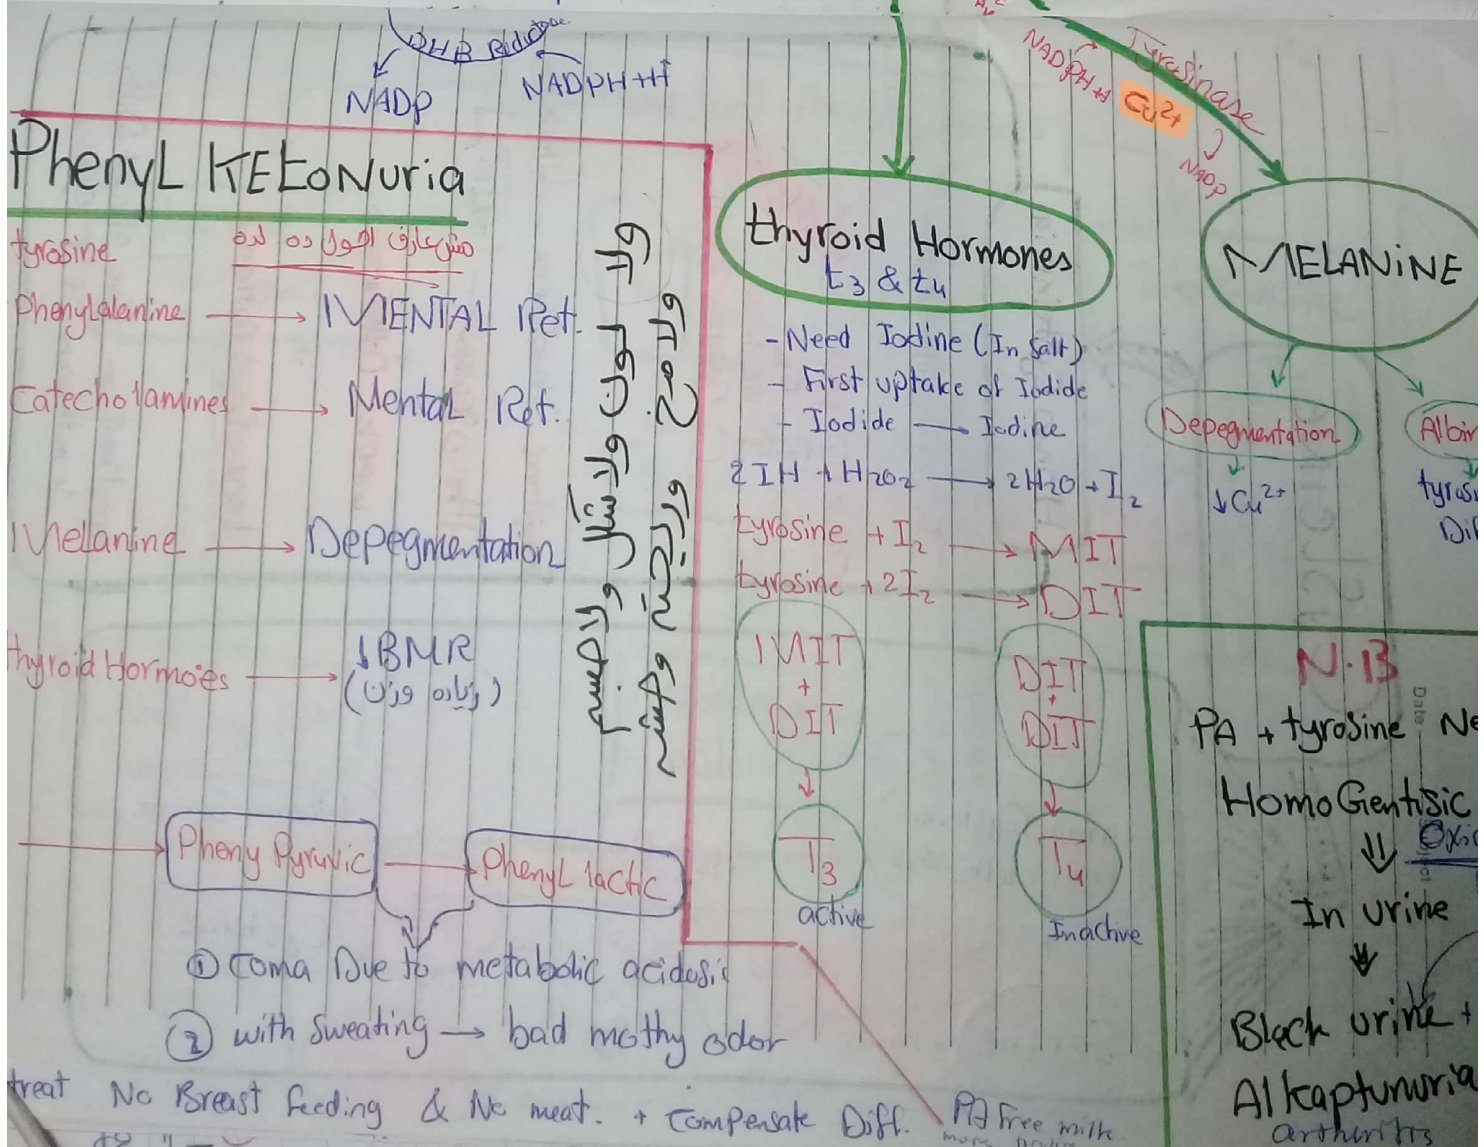 DHB Reductase
NADP
NADPH+H
Phenyl KEtoNuria
tyrosine
مش عارف اقول ده لده
Phenylalanine → MENTAL Ret.
Catecholamines → Mental Ret.
Melanine → Depegmentation
thyroid Hormoes → ↓BMR
(زياده وزن)
ولا لون ولا شكل ولا جسم
ولا مخ وريحته وحشه
Pheny Pyruvic → Phenyl lactic
① Coma Due to metabolic acidosis
② with sweating → bad mothy odor
treat No Breast feeding & No meat. + Compensate Diff. PA Free milk
thyroid Hormones
t3 & t4
- Need Iodine (In Salt)
- First uptake of Iodide
- Iodide → Iodine
2IH + H2O2 → 2H2O + I2
tyrosine + I2 → MIT
tyrosine + 2I2 → DIT
MIT
+
DIT
T3
active
DIT
+
DIT
T4
Inactive
Tyrosinase
NADPH+H
Cu2+
NADP
MELANINE
Depegmentation
↓Cu2+
Albin
tyrosi
N.B
Date
PA + tyrosine Ne
HomoGentisic
Oxi
In urine
Black urine +
Alkaptunuria
artherits